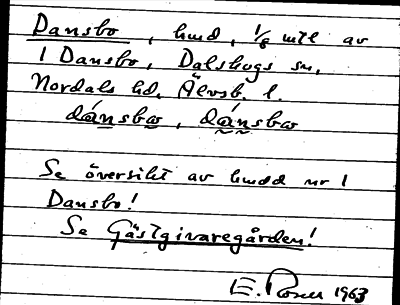 Dansbo, hmd, 1/8 mtl av
1 Dansbo, Dalskogs sn,
Nordals hd, Älvsb. l.
dánsbω, dánsbω
Se översikt av hmdd nr 1
Dansbo!
Se Gästgivaregården!
E. Rosen 1963